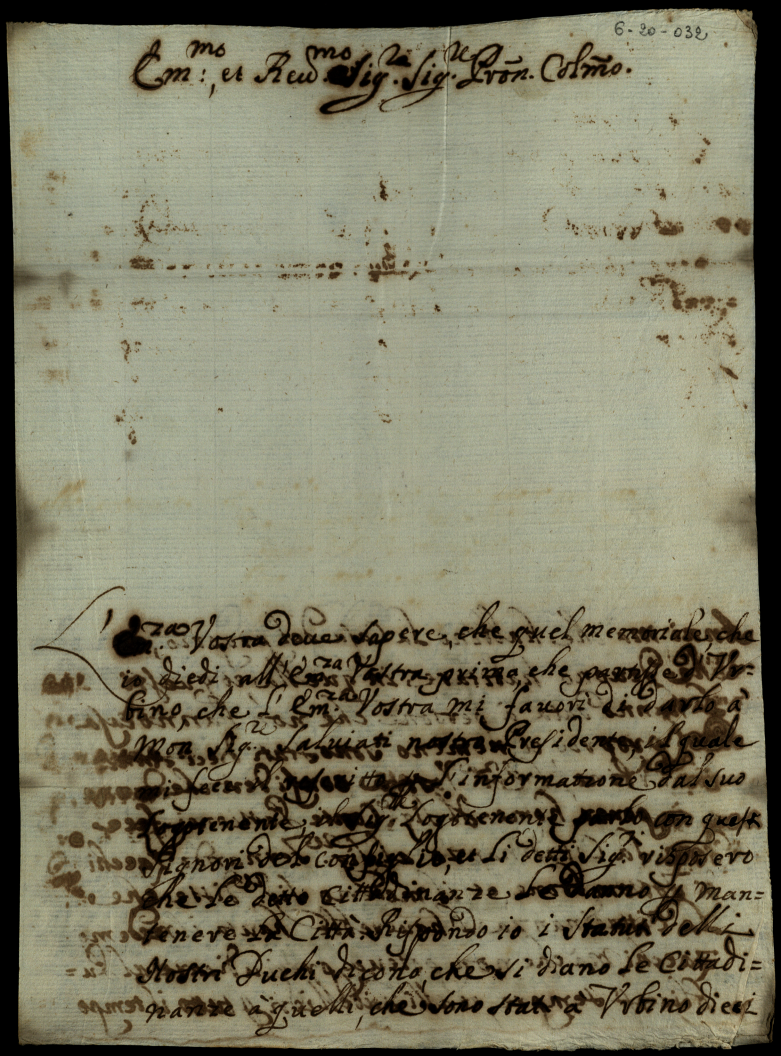 6-20-032
Em:mo, et Reu.mo Sig.re Sig.re Prõn. Colmo.
L'Em.za Vostra deue sapere, che quel memoriale, che
io diedi all'Em.za Vostra prima che partisse d'Vr-
bino, che l'Em.za Vostra mi fauorì di darlo à
Mon Sig.r Saluiati nostro Presidente, il quale
mi fece l'informatione dal suo
Logotenente, il Sig. Logotenente parlò con questi
Signori del Consiglio, et li detti Sig.ri risposero
che le dette Cittadinanze le danno p man=
tenere la Città. Rispondo io i Statuti delli
Nostri Duchi dicono, che si diano le Cittadi=
nanze à quelli, che sono stati à Vrbino dieci